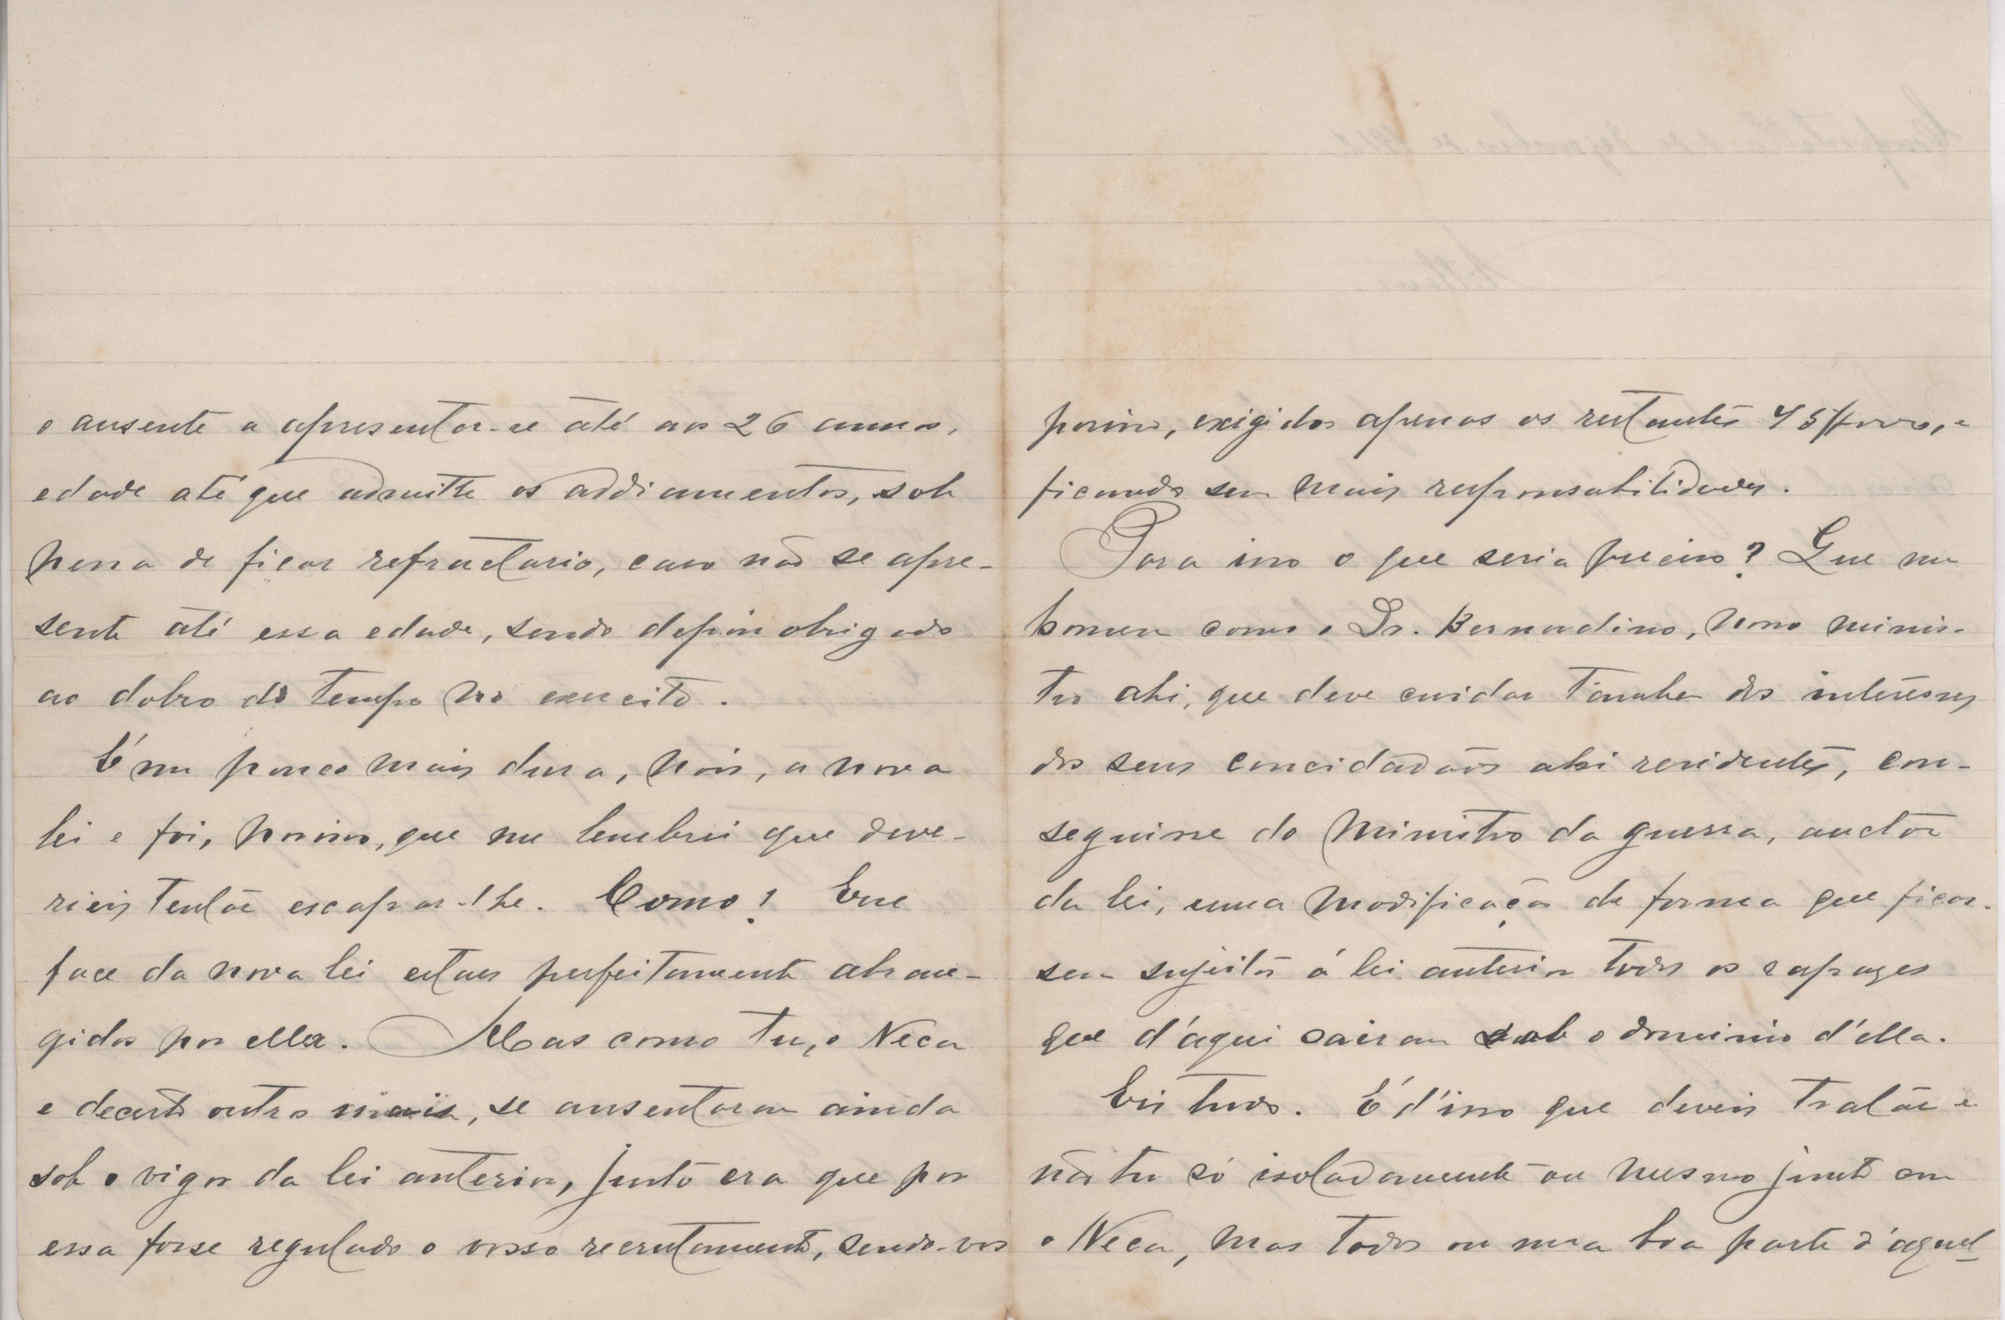 o ausente a apresentar-se até aos 26 annos,
edade até que admitte os addiamentos, sob
pena de ficar refractario, caso não se apre-
sente até essa edade, sendo depois obrigado
ao dobro do tempo no exercito.
É um pouco mais dura, pois, a nova
lei e foi, por isso, que me lembrei que deve-
rieis tentar escapar-lhe. Como? Em
face da nova lei estaes perfeitamente abran-
gidos por ella. Mas como tu, o Neca
e decerto outros mais, se ausentaram ainda
sob o vigor da lei anterior, justo era que por
essa fosse regulado o vosso recrutamento, sendo-vos
por isso, exigidos apenas os restantes
ficando sem mais responsabilidades.
Para isso o que seria preciso? Que um
homem como o Dr. Bernardino, nosso minis-
tro ahi, que deve cuidar tambem dos interesses
dos seus concidadãos ahi residentes, con-
seguisse do ministro da guerra, auctor
da lei, uma modificação de forma que ficas-
sem sujeitos á lei anterior todos os rapazes
que d'aqui sairam sob o dominio d'ella.
Eis tudo. É d'isso que deveis tratar e
não tu só isoladamente ou mesmo junto com
o Neca, mas todos ou uma boa parte d'aquel-